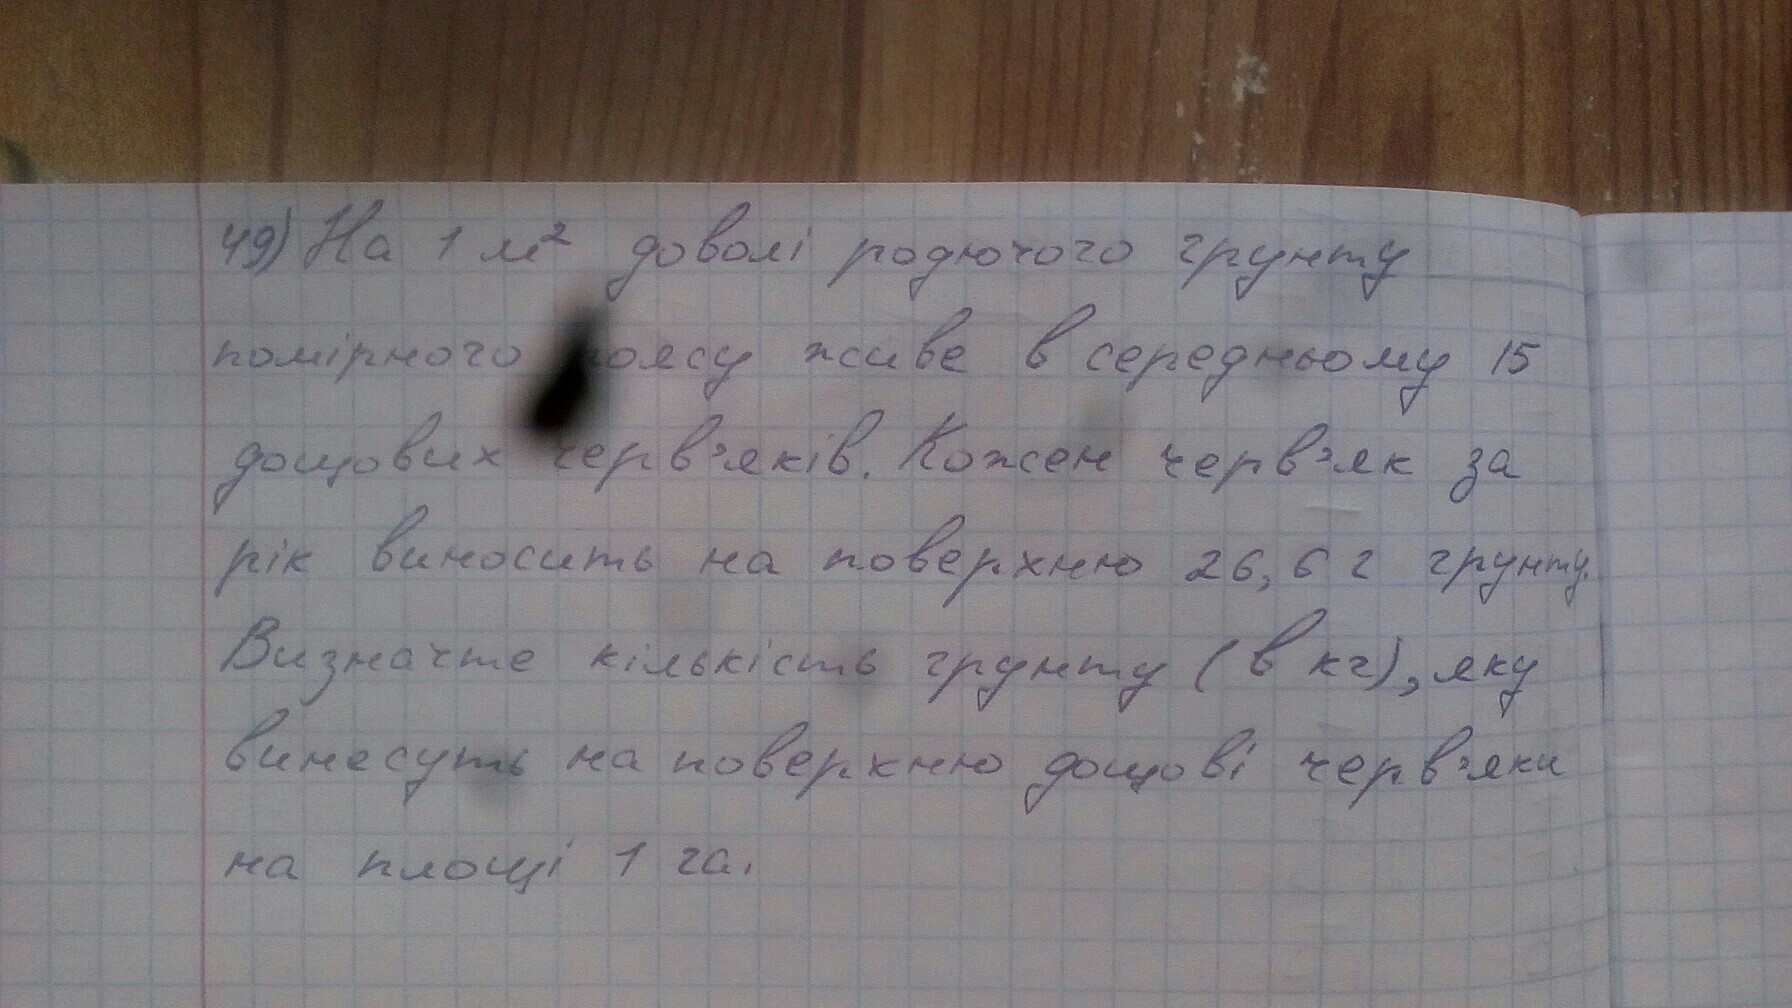 49) На 1 м² доволі родючого грунту
помірного поясу живе в середньому 15
дощових черв'яків. Кожен черв'як за
рік виносить на поверхню 26,6 г грунту.
Визначте кількість грунту (в кг), яку
винесуть на поверхню дощові черв'яки
на площі 1 га.